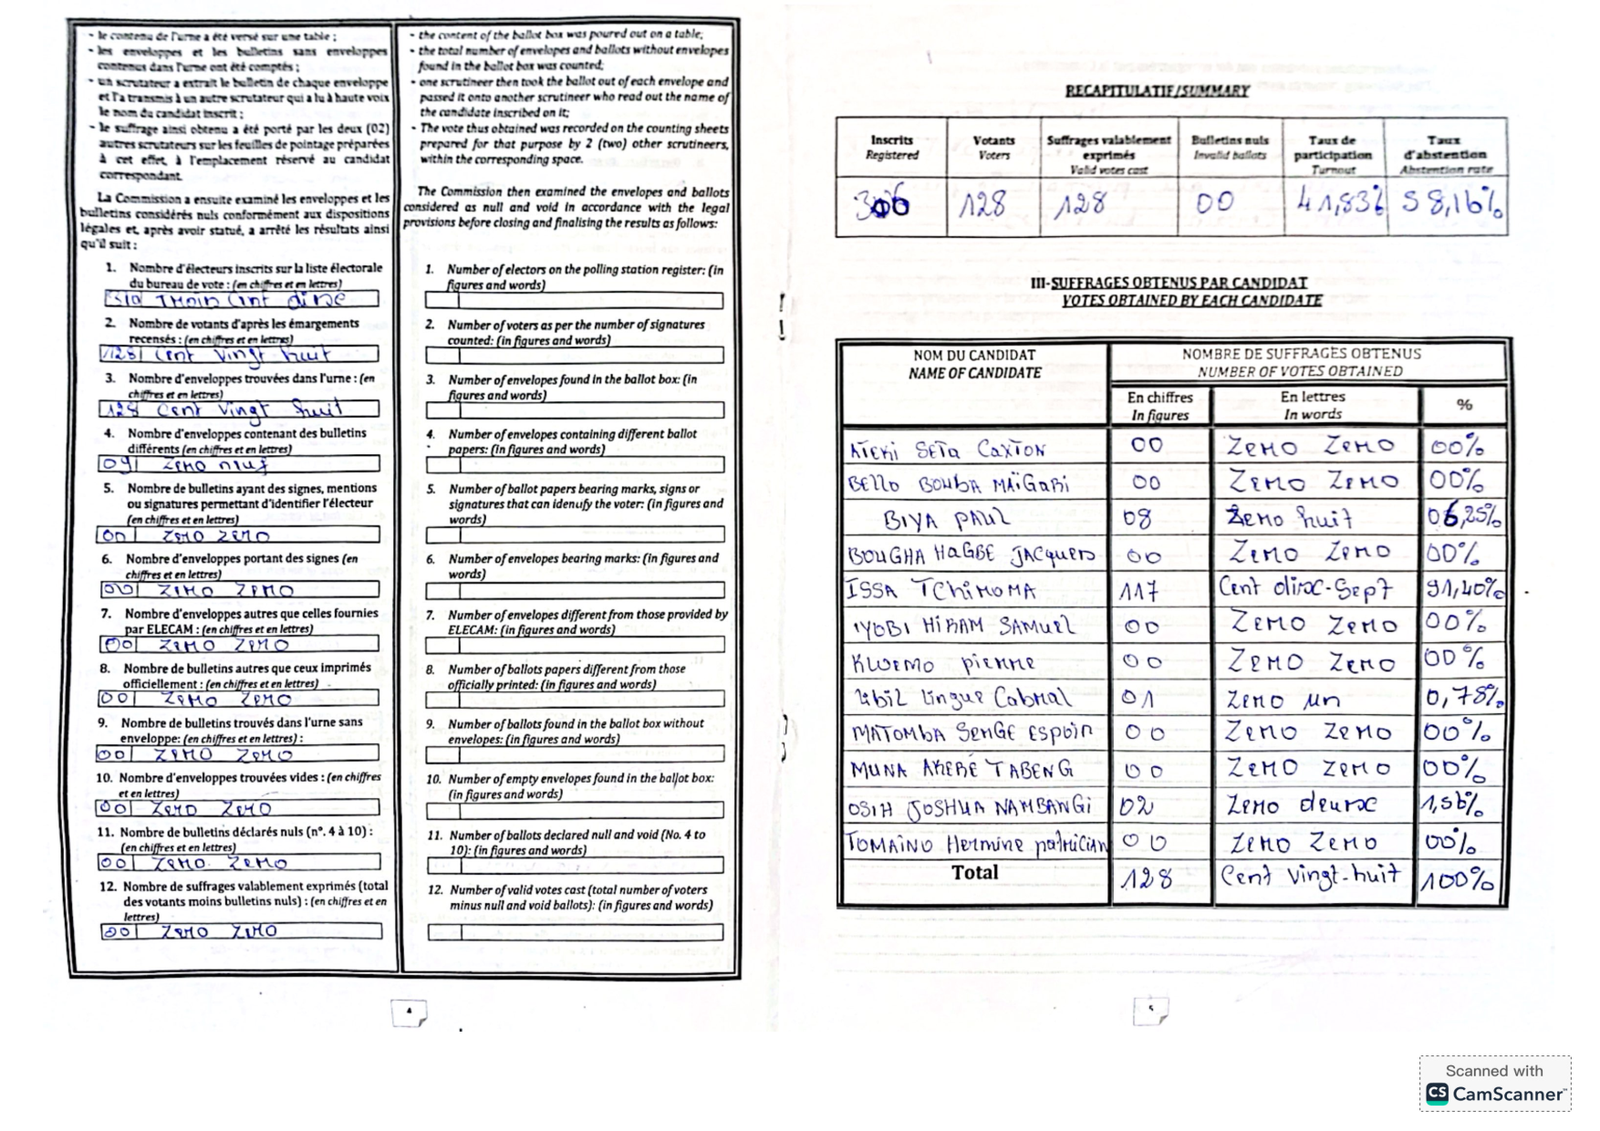 - le contenu de l'urne a été versé sur une table ;
- les enveloppes et les bulletins sans enveloppes
contenus dans l'urne ont été comptés ;
- un scrutateur a extrait le bulletin de chaque enveloppe
et l'a transmis à un autre scrutateur qui a lu à haute voix
le nom du candidat inscrit ;
- le suffrage ainsi obtenu a été porté par les deux (02)
autres scrutateurs sur les feuilles de pointage préparées
à cet effet, à l'emplacement réservé au candidat
correspondant.
La Commission a ensuite examiné les enveloppes et les
bulletins considérés nuls conformément aux dispositions
légales et, après avoir statué, a arrêté les résultats ainsi
qu'il suit :
1. Nombre d'électeurs inscrits sur la liste électorale
du bureau de vote : (en chiffres et en lettres)
310 Trois Cent dixe
2. Nombre de votants d'après les émargements
recensés : (en chiffres et en lettres)
128 Cent Vingt huit
3. Nombre d'enveloppes trouvées dans l'urne : (en
chiffres et en lettres)
128 Cent Vingt huit
4. Nombre d'enveloppes contenant des bulletins
différents (en chiffres et en lettres)
09 Zero neuf
5. Nombre de bulletins ayant des signes, mentions
ou signatures permettant d'identifier l'électeur
(en chiffres et en lettres)
00 Zero Zero
6. Nombre d'enveloppes portant des signes (en
chiffres et en lettres)
00 Zero Zero
7. Nombre d'enveloppes autres que celles fournies
par ELECAM : (en chiffres et en lettres)
00 Zero Zero
8. Nombre de bulletins autres que ceux imprimés
officiellement : (en chiffres et en lettres)
00 Zero Zero
9. Nombre de bulletins trouvés dans l'urne sans
enveloppe: (en chiffres et en lettres) :
00 Zero Zero
10. Nombre d'enveloppes trouvées vides : (en chiffres
et en lettres)
00 Zero Zero
11. Nombre de bulletins déclarés nuls (n°. 4 à 10) :
(en chiffres et en lettres)
00 Zero Zero
12. Nombre de suffrages valablement exprimés (total
des votants moins bulletins nuls) : (en chiffres et en
lettres)
00 Zero Zero
- the content of the ballot box was poured out on a table;
- the total number of envelopes and ballots without envelopes
found in the ballot box was counted;
- one scrutineer then took the ballot out of each envelope and
passed it onto another scrutineer who read out the name of
the candidate inscribed on it;
- The vote thus obtained was recorded on the counting sheets
prepared for that purpose by 2 (two) other scrutineers,
within the corresponding space.
The Commission then examined the envelopes and ballots
considered as null and void in accordance with the legal
provisions before closing and finalising the results as follows:
1. Number of electors on the polling station register: (in
figures and words)
2. Number of voters as per the number of signatures
counted: (in figures and words)
3. Number of envelopes found in the ballot box: (in
figures and words)
4. Number of envelopes containing different ballot
papers: (in figures and words)
5. Number of ballot papers bearing marks, signs or
signatures that can idenufy the voter: (in figures and
words)
6. Number of envelopes bearing marks: (in figures and
words)
7. Number of envelopes different from those provided by
ELECAM: (in figures and words)
8. Number of ballots papers different from those
officially printed: (in figures and words)
9. Number of ballots found in the ballot box without
envelopes: (in figures and words)
10. Number of empty envelopes found in the ballot box:
(in figures and words)
11. Number of ballots declared null and void (No. 4 to
10): (in figures and words)
12. Number of valid votes cast (total number of voters
minus null and void ballots): (in figures and words)
4
RECAPITULATIF/SUMMARY
Inscrits Registered Votants Voters Suffrages valablement exprimés Valid votes cast Bulletins nuls Invalid ballots Taux de participation Turnout Taux d'abstention Abstention rate
306 128 128 00 41,83% 58,16%
III-SUFFRAGES OBTENUS PAR CANDIDAT
VOTES OBTAINED BY EACH CANDIDATE
NOM DU CANDIDAT NOMBRE DE SUFFRAGES OBTENUS
NAME OF CANDIDATE NUMBER OF VOTES OBTAINED
En chiffres En lettres %
In figures In words
Ateki Seta Caxton 00 Zero Zero 00%
Bello Bouba Maïgari 00 Zero Zero 00%
BIYA PAUL 08 Zero huit 06,25%
BOUGHA HAGBE JAcques 00 Zero Zero 00%
ISSA TCHIROMA 117 Cent dixe-Sept 91,40%
IYODI HIRAM SAMUEL 00 Zero Zero 00%
KWEMO pierre 00 Zero Zero 00%
Libii Lingue Cabral 01 Zero un 0,78%
MATOMBA SERGE ESpoir 00 Zero Zero 00%
MUNA AKERE TABENG 00 Zero Zero 00%
OSIH JOSHUA NAMBANGI 02 Zero deuxe 1,56%
TOMAINO Hermine patrician 00 Zero Zero 00%
Total 128 Cent Vingt-huit 100%
5
Scanned with
CS CamScanner